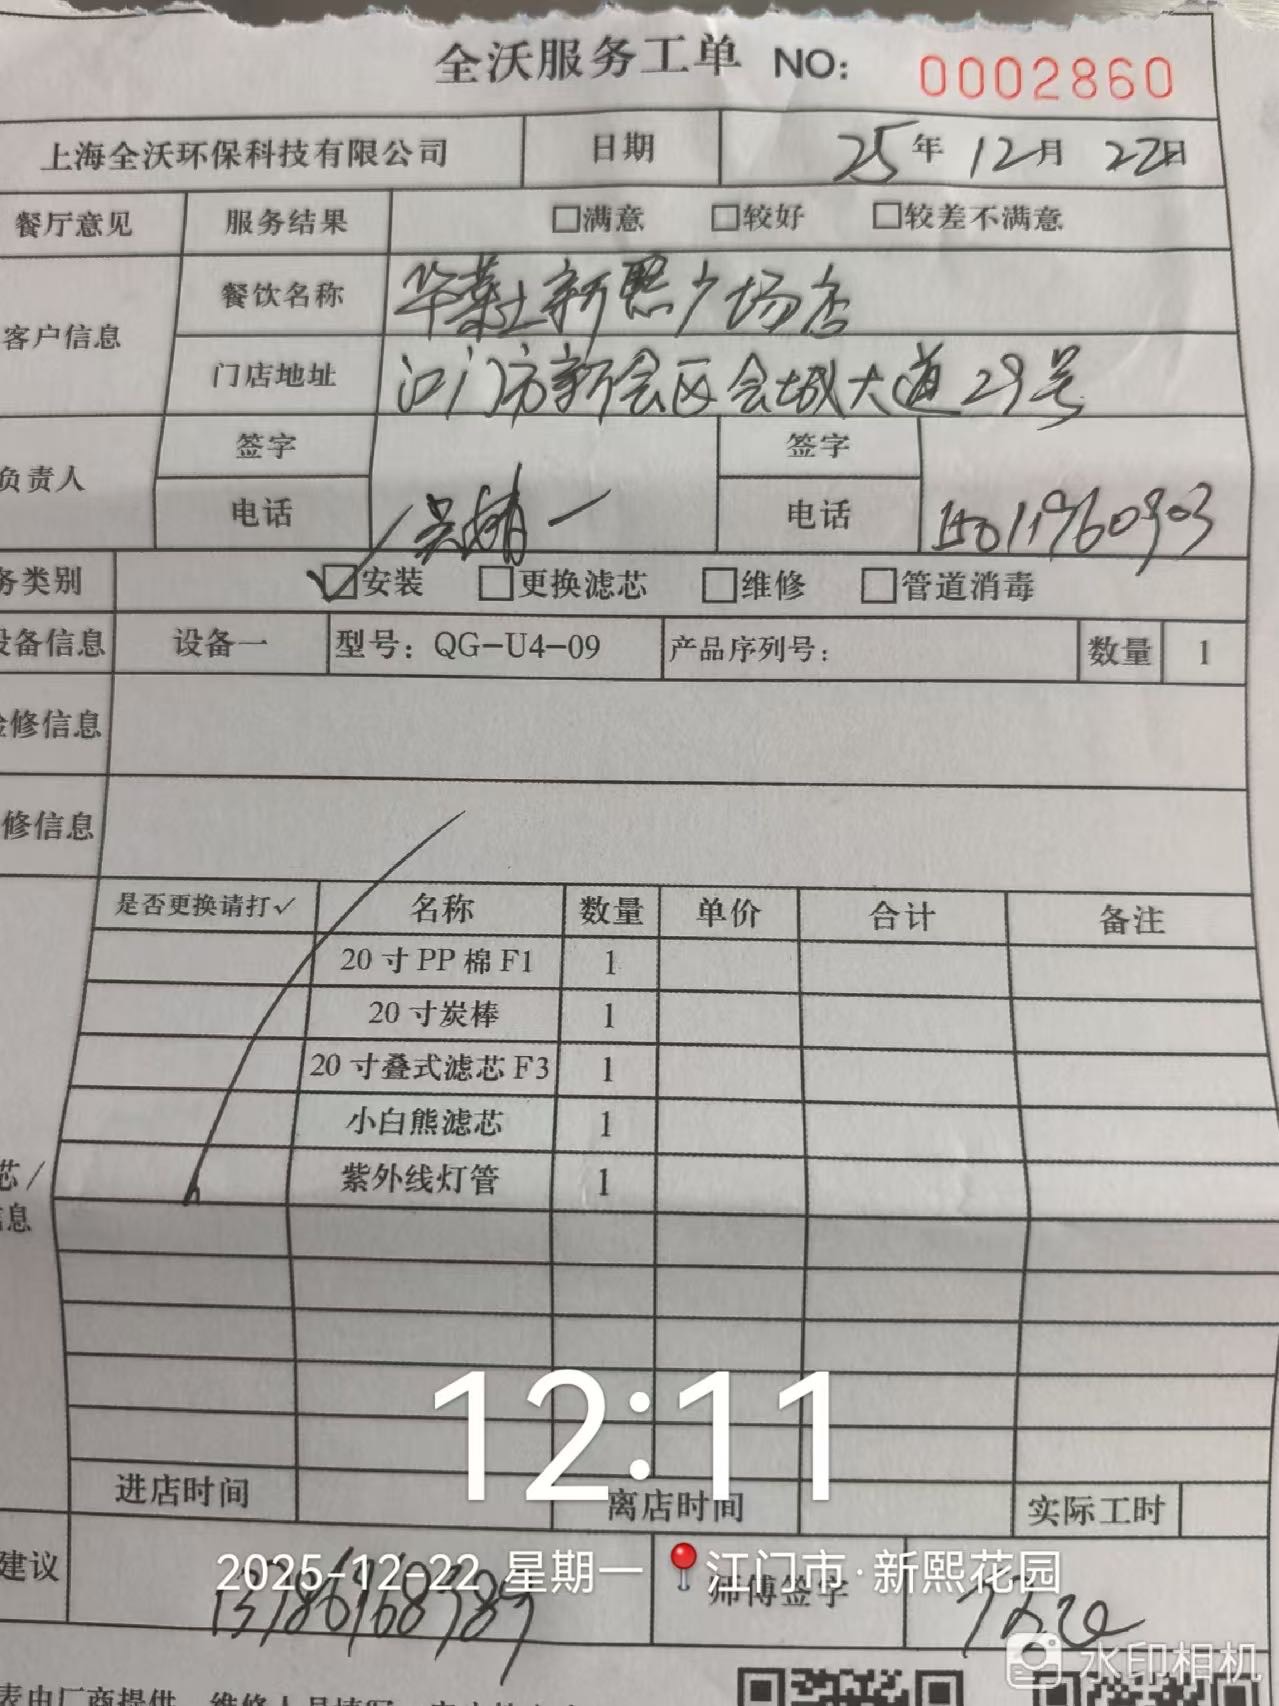 全沃服务工单 NO: 0002860
上海全沃环保科技有限公司 日期 25年12月22日
餐厅意见 服务结果 □满意 □较好 □较差不满意
客户信息 餐饮名称 华莱士新熙广场店
门店地址 江门市新会区会城大道29号
负责人 签字 签字
电话 电话
务类别 ☑安装 □更换滤芯 □维修 □管道消毒
设备信息 设备一 型号: QG-U4-09 产品序列号: 数量 1
检修信息
修信息
是否更换请打✓ 名称 数量 单价 合计 备注
20寸PP棉F1 1
20寸炭棒 1
20寸叠式滤芯F3 1
小白熊滤芯 1
芯/ 紫外线灯管 1
信息
12:11
进店时间 离店时间 实际工时
建议 2025-12-22 星期一 江门市·新熙花园
师傅签字
水印相机
表由厂商提供